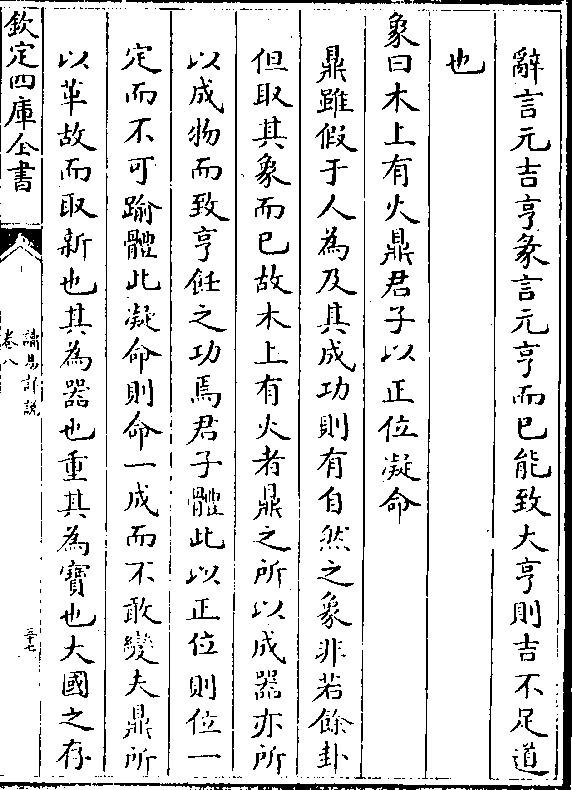 辭言元吉亨彖言元亨而已能致大亨則吉不足道
也
象曰木上有火鼎君子以正位凝命
鼎雖假于人為及其成功則有自然之象非若餘卦
但取其象而已故木上有火者鼎之所以成器亦所
以成物而致亨飪之功焉君子體此以正位則位一
定而不可踰體此凝命則命一成而不敢變夫鼎所
以革故而取新也其為器也重其為寶也大國之存
欽定四庫全書
讀易詳說
卷八
三十七